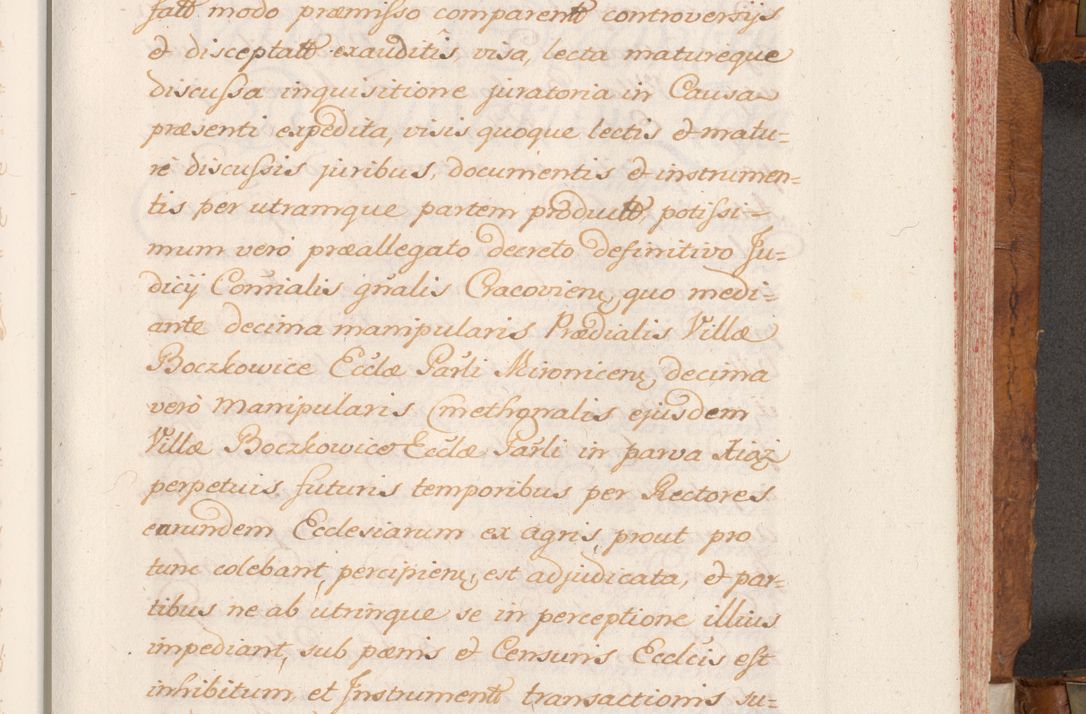 fatt modo præmisso comparentt controversijs
& disceptatt exauditis, visa, lecta matureque
discussa inquisitione juratoria in Causa
præsenti expedita, visis quoque lectis & matu=
rè discussis juribus, documentis & instrumen=
tis per utramque partem produtt, potissi=
mum verò præallegato decreto definitivo Ju=
dicij Conñialis gñalis Cracovien, quo medi=
ante decima manipularis Prædialis Villæ
Boczkowice Ecclæ Parli Mironicen, decima
verò manipularis Cmethonalis ejusdem
Villæ Boczkowice Ecclæ Parli in parva Xiąz
perpetuis futuris temporibus per Rectores
earundem Ecclesiarum ex agris, prout pro
tunc colebant, percipien, est adjudicata, & par=
tibus ne ab utrinque se in perceptione illius
impediant, sub pænis & Censuris Ecclcis est
inhibitum, et Instrumentt transactionis su=